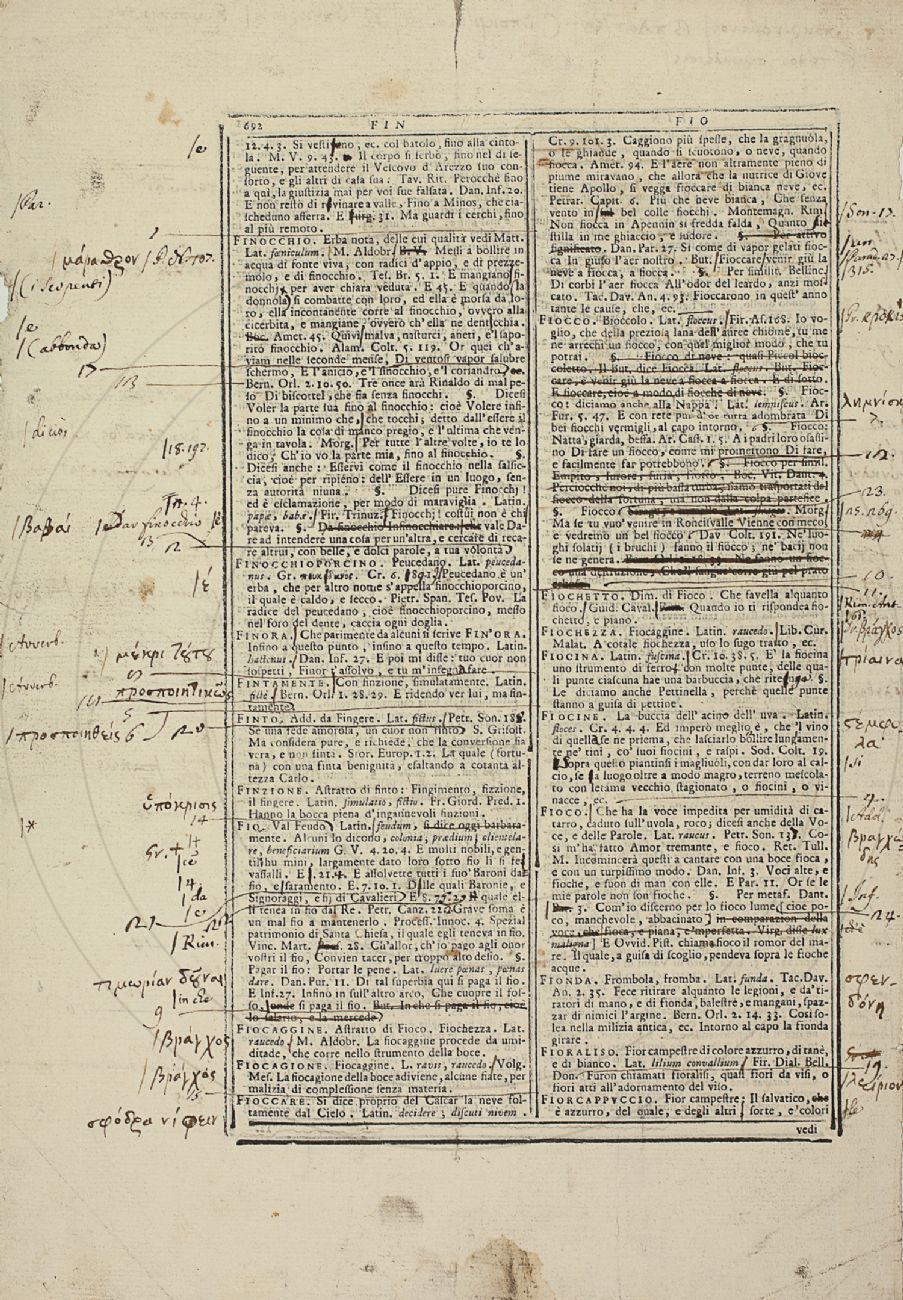 692 FIN
FIO
12. 4. 3. Si vestieno, ec. col batolo, fino alla cinto-
la. M. V. 9. 43. Il corpo si serbò, fino nel dì se-
guente, per attendere il Vescovo d'Arezzo suo con-
sorto, e gli altri di casa sua. Tav. Rit. Perocchè fino
a qui, la giustizia mai per voi fue falsata. Dan. Inf. 20.
E non restò di rovinare a valle, Fino a Minos, che cia-
scheduno afferra. E 31. Ma guardi i cerchi, fino
al più remoto.
FINOCCHIO. Erba nota, delle cui qualità vedi Matt.
Lat. fœniculum. M. Aldobr. Messi a bollire in
acqua di fonte viva, con radici d'appio, e di prezze-
molo, e di finocchio. Tes. Br. 5. 1. E mangiano fi-
nocchj, per aver chiara veduta. E 45. E quando la
donnola si combatte con loro, ed ella è morsa da lo-
ro, ella incontanente corre al finocchio, ovvero alla
cicerbita, e mangiane, ovvero ch'ella ne dentecchia.
Amet. 45. Quivi malva, nasturci, aneti, e'l sapo-
rito finocchio. Alam. Colt. 5. 119. Or quei ch'a-
viam nelle seconde mense, Di ventosi vapor salubre
schermo, E l'anicio, e'l finocchio, e'l coriandro
Bern. Orl. 2. 10. 50. Tre once arà Rinaldo di mal pe-
so Di biscottel, che fia senza finocchi. §. Dicesi
Voler la parte sua fino al finocchio: cioè Volere infi-
no a un minimo che, che tocchi; detto dall'essere il
finocchio la cosa di manco pregio, e l'ultima che ven-
ga in tavola. Morg. Per tutte l'altre volte, io te lo
dico, Ch'io vo la parte mia, fino al finocchio. §.
Dicesi anche: Esservi come il finocchio nella salsic-
cia, cioè per ripieno: dell'Essere in un luogo, sen-
za autorità niuna. §. Dicesi pure Finocchj!
ed è esclamazione, per modo di maraviglia. Latin.
papæ, babæ. Fir. Trinuz. Finocchj! costui non è chi
pareva. §. Da finocchio Infinocchiare: che vale Da-
re ad intendere una cosa per un'altra, e cercare di reca-
re altrui, con belle, e dolci parole, a tua volontà
FINOCCHIOPORCINO. Peucedano. Lat. peuceda-
nus. Gr. Cr. 6. Peucedano è un'
erba, che per altro nome s'appella finocchioporcino,
il quale è caldo, e secco. Pietr. Span. Tes. Pov. La
radice del peucedano, cioè finocchioporcino, messo
nel foro del dente, caccia ogni doglia.
FINORA. Che parimente da alcuni si scrive FIN'ORA.
Infino a questo punto, infino a questo tempo. Latin.
hactenus. Dan. Inf. 27. E poi mi disse: tuo cuor non
sospetti, Finor t'assolvo, e tu m'insegna fare.
FINTAMENTE. Con finzione, simulatamente. Latin.
fictè. Bern. Orl. 1. 28. 29. E ridendo ver lui, ma fin-
tamente
FINTO, Add. da Fingere. Lat. fictus. Petr. Son. 188.
Se una fede amorosa, un cuor non finto. S. Grisost.
Ma considera pure, e richiede, che la conversione sia
vera, e non finta. Stor. Europ. 1. 2. La quale (fortu-
na) con una finta benignità, esaltando a cotanta al-
tezza Carlo.
FINZIONE. Astratto di finto: Fingimento, fizzione,
il fingere. Latin. simulatio, fictio. Fr. Giord. Pred. 1.
Hanno la bocca piena d'ingannevoli finzioni.
FIO. Val Feudo. Latin. feudum, si dice oggi barbara-
mente. Alcuni lo dicono, colonia, prædium clientela-
re, beneficiarium G. V. 4. 20. 4. E molti nobili, e gen-
tilshu mini, largamente dato loro sotto fio li si fe
vassalli. E 21. 4. E assolvette tutti i suo' Baroni dal
fio, e saramento. E 7. 10. 1. Dalle quali Baronie, e
Signoraggi, e fij di Cavalieri. E 8. 77. 2. Il quale el-
li tenea in fio dal Re. Petr. Canz. 22. Grave soma è
un mal fio a mantenerlo. Process. Innoc. 4. Spezial
patrimonio di Santa Chiesa, il quale egli teneva in fio.
Vinc. Mart. 28. Ch'allor, ch'io pago agli onor
vostri il fio, Convien tacer, per troppo alto desio. §.
Pagar il fio: Portar le pene. Lat. luere pœnas, pœnas
dare. Dan. Pur. 11. Di tal superbia qui si paga il fio.
E Inf. 27. Infino in sull'altro arco, Che cuopre il fos-
so, onde si paga il fio. But. In che si paga il fio, cioè
lo salario, e la mercede
FIOCAGGINE. Astratto di Fioco. Fiochezza. Lat.
raucedo. M. Aldobr. La fiocaggine procede da umi-
ditade, che corre nello strumento della boce.
FIOCAGIONE. Fiocaggine. L. ravis, raucedo. Volg.
Mes. La fiocagione della boce adiviene, alcune fiate, per
malizia di complessione senza materia.
FIOCCARE. Si dice proprio del Cascar la neve fol-
tamente dal Cielo. Latin. decidere, discuti nivem.
Cr. 9. 101. 3. Caggiono più spesse, che la gragnuola,
o le ghiande, quando si scuotono, o neve, quando
fiocca. Amet. 94. E l'aere non altramente pieno di
piume miravano, che allora che la nutrice di Giove
tiene Apollo, si vegga fioccare di bianca neve, ec.
Petrar. Capit. 6. Più che neve bianca, Che senza
vento in bel colle fiocchi. Montemagn. Rim.
Non fiocca in Apennin sì fredda falda, Quanto
stilla in me ghiaccio, e sudore. §. Per attivo
significato. Dan. Par. 27. Si come di vapor gelati fioc-
ca In giuso l'aer nostro. But. Fioccare, venir giù la
neve a fiocca, a fiocca. §. Per similit. Bellinc.
Di corbi l'aer fiocca All'odor del leardo, anzi mos-
cato. Tac. Dav. An. 4. 93. Fioccarono in quest'anno
tante le cause, che, ec.
FIOCCO. Bioccolo. Lat. floccus. Fir. As. 168. Io vo-
glio, che della preziosa lana dell'auree chiome, tu me
ne arrechi un fiocco, con quel miglior modo, che tu
potrai. §. Fiocco di neve: quasi Piccol bioc-
coletto. Il But. dice Fiocca. Lat. floccus. But. Fioc-
care, è venir giù la neve a fiocca a fiocca. E di sotto.
E fioccare, cioè a modo di fiocche di neve. §. Fioc-
co: diciamo anche alla Nappa. Lat. lemniscus. Ar.
Fur. 5. 47. E con rete pur d'or tutta adombrata Di
bei fiocchi vermigli, al capo intorno. §. Fiocco:
Natta, giarda, beffa. Ar. Cass. 1. 5. A i padri loro osassi-
no Di fare un fiocco, come mi promettono Di fare,
e facilmente far potrebbono. §. Fiocco per simil.
Empito, furore, furia, Boc. Vit. Dant. 4.
Perciocchè noi, di più bassa turba, siamo trasportati dal
fiocco della fortuna, ma non dalla colpa partefice,
§. Fiocco Morg.
Ma se tu vuo' venire in Roncisvalle Vienne con meco,
e vedremo un bel fiocco. Dav Colt. 191. Ne' luo-
ghi solatij (i bruchi) fanno il fiocco; ne' bacij non
se ne genera.
FIOCHETTO. Dim. di Fioco. Che favella alquanto
fioco. Guid. Caval. Quando io ti rispondea fio-
chetto, e piano.
FIOCHEZZA. Fiocaggine. Latin. raucedo. Lib. Cur.
Malat. A cotale fiochezza, uso lo sugo trasto, ec.
FIOCINA. Latin. fuscina. Cr. 10. 38. 5. E' la fiocina
uno strumento di ferro con molte punte, delle qua-
li punte ciascuna hae una barbuccia, che ritenga. §.
Le diciamo anche Pettinella, perchè quelle punte
stanno a guisa di pettine.
FIOCINE. La buccia dell'acino dell'uva. Latin.
floces. Cr. 4. 4. 4. Ed imperò meglio è, che 'l vino
di quella se ne priema, che lasciarlo bollire lungamen-
te pe' tini, co' suoi fiocini, e raspi. Sod. Colt. 19.
Sopra quello piantinsi i magliuoli, con dar loro al cal-
cio, se fia luogo oltre a modo magro, terreno mescola-
to con letame vecchio stagionato, o fiocini, o vi-
nacce, ec.
FIOCO. Che ha la voce impedita per umidità di ca-
tarro, caduto sull'uvola, roco; dicesi anche della Vo-
ce, e delle Parole. Lat. raucus. Petr. Son. 13. Co-
sì m'ha fatto Amor tremante, e fioco. Ret. Tull.
M. Incomincerà questi a cantare con una boce fioca,
e con un turpissimo modo. Dan. Inf. 3. Voci alte, e
fioche, e suon di man con elle. E Par. 11. Or se le
mie parole non son fioche. §. Per metaf. Dant.
3. Com'io discerno per lo fioco lume, cioè po-
co, manchevole, abbacinato in comparazion della
voce, che fioca, e piana, e 'mperfetta. Virg. disse lux
maligna] E Ovvid. Pist. chiama fioco il romor del ma-
re. Il quale, a guisa di scoglio, pendeva sopra le fioche
acque.
FIONDA. Frombola, fromba. Lat. funda. Tac. Dav.
An. 2. 35. Fece ritirare alquanto le legioni, e da' ti-
ratori di mano, e di fionda, balestre, e mangani, spaz-
zar di nimici l'argine. Bern. Orl. 2. 14. 33. Così so-
lea nella milizia antica, ec. Intorno al capo la fionda
girare.
FIORALISO. Fior campestre di colore azzurro, di tanè,
e di bianco. Lat. lilium convallium. Fir. Dial. Bell.
Don. Furon chiamati fioralisi, quasi fiori da visi, o
fiori atti all'adornamento del viso.
FIORCAPPUCCIO. Fior campestre: Il salvatico, che
è azzurro, del quale, e degli altri sorte, e' colori
vedi
μάραθρον
(i scoponti)
(abbonda)
17
113
18. 197.
βαβαί
Dar finocchio
13
12
Avverb.
μέχρι τούτου
Avverb.
προσποιητικῶς
προσποιηθείς 6
20
ὑπόκρισις
14
Gr.
da
27
Rim.
τιμωρίαν δοῦναι
9
βράγχος
βράγχος
σφόδρα νίφειν
Son. 17.
315.
12.
23.
10.
11.
βράγχος
τρίαινα
24.
σφεν-
δόνη
19.